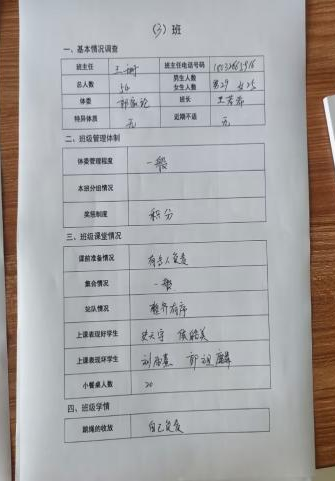 (3) 班
一、基本情况调查
班主任 王 班主任电话号码
总人数 54 男生人数 男29
女生人数 女25
体委 郭家 班长 王
特异体质 无 近期不适 无
二、班级管理体制
体委管理程度 一般
本班分组情况
奖惩制度 积分
三、班级课堂情况
课前准备情况 有专人负责
集合情况 一般
站队情况 整齐有序
上课表现好学生 史天宇
上课表现坏学生 刘 郭祖麟
小餐桌人数 20
四、班级学情
跳绳的收放 自己负责